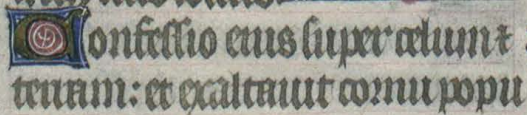 Confessio eius super celium ⁊
terram: et exaltauit cornu popu